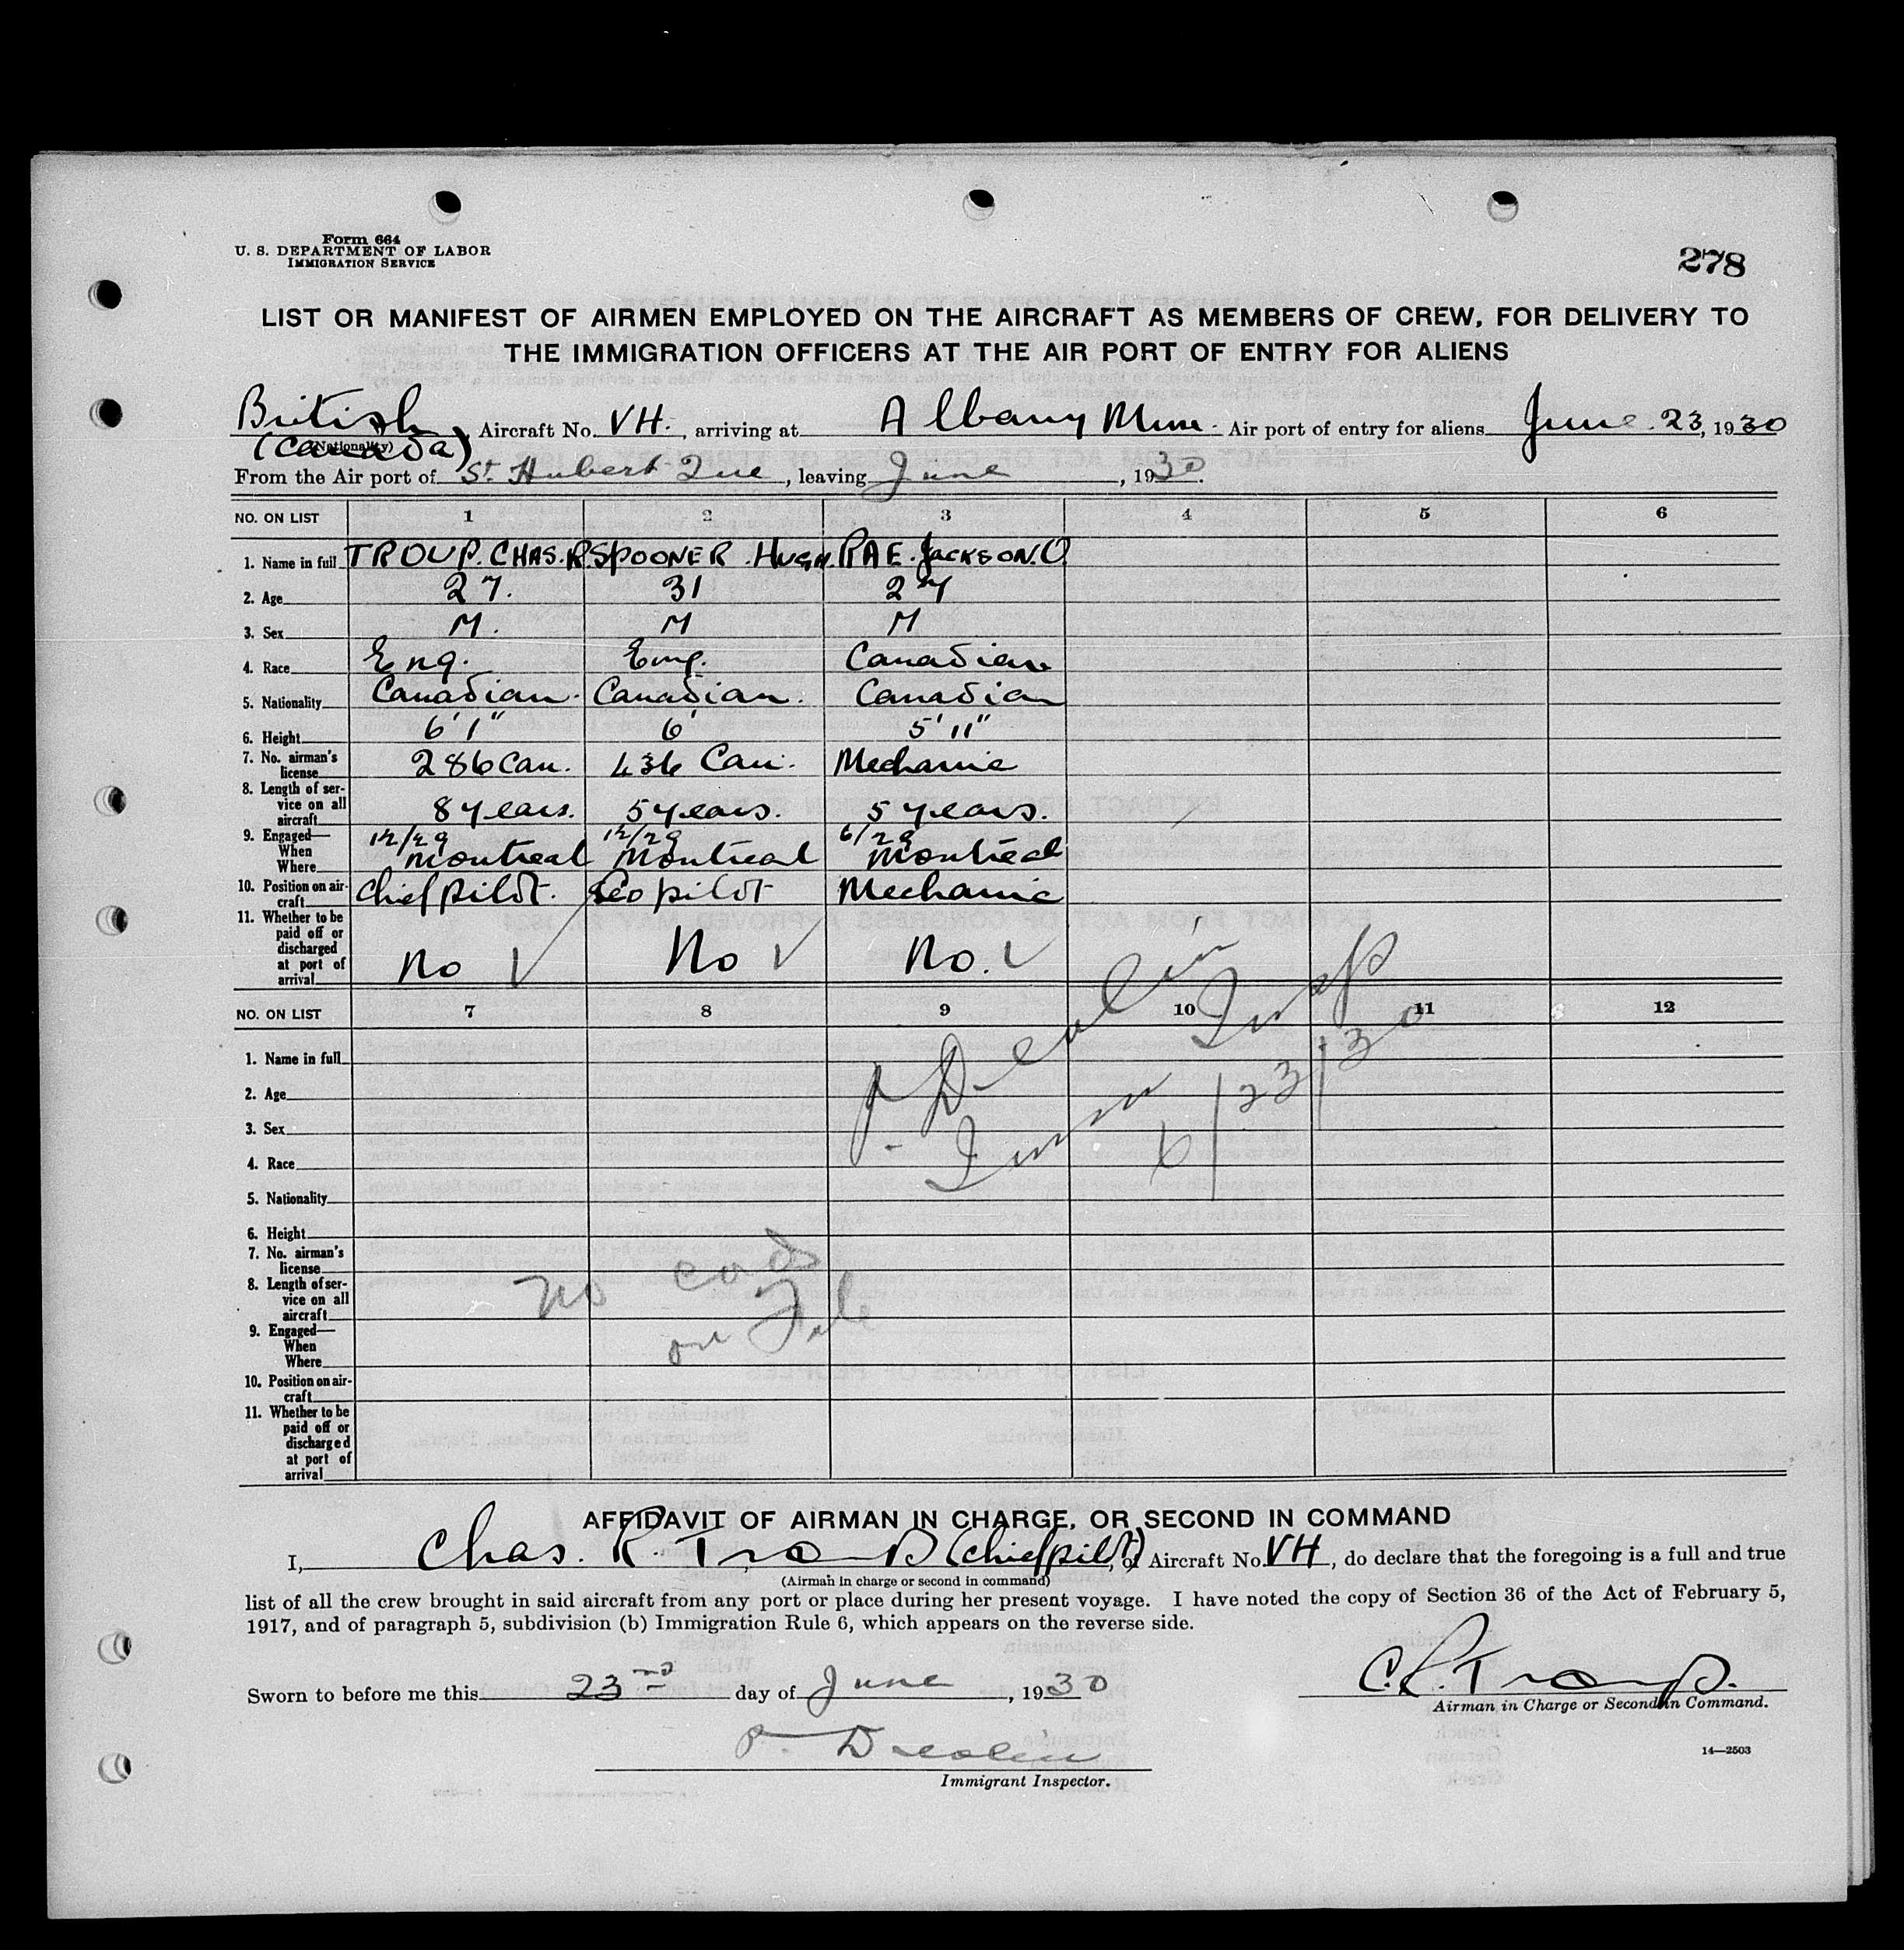 Form 664
U. S. DEPARTMENT OF LABOR
IMMIGRATION SERVICE
278
LIST OR MANIFEST OF AIRMEN EMPLOYED ON THE AIRCRAFT AS MEMBERS OF CREW, FOR DELIVERY TO
THE IMMIGRATION OFFICERS AT THE AIR PORT OF ENTRY FOR ALIENS
British, Aircraft No. VH., arriving at Albany Mun. Air port of entry for aliens June 23, 1930
(Canada) (Nationality)
From the Air port of St. Hubert Que, leaving June, 1930.
NO. ON LIST 1 2 3 4 5 6
1. Name in full TROUP. CHAS. R. SPOONER. HUGH. RAE. JACKSON. O
2. Age 27. 31 27
3. Sex M. M M
4. Race Eng. Eng. Canadian
5. Nationality Canadian. Canadian. Canadian
6. Height 6' 1" 6' 5' 11"
7. No. airman's license 286 Can. 436 Can. Mechanic
8. Length of service on all aircraft 8 years. 5 years. 5 years.
9. Engaged— 12/29 12/29 6/29
When
Where Montreal Montreal Montreal
10. Position on aircraft Chief pilot. Co pilot Mechanic
11. Whether to be paid off or discharged at port of arrival No No No.
P. Devlin
Insp
NO. ON LIST 7 8 9 10 11 12
1. Name in full
2. Age
Imm 6/23/30
3. Sex
4. Race
5. Nationality
6. Height
7. No. airman's license
8. Length of service on all aircraft
no card
on File
9. Engaged—
When
Where
10. Position on aircraft
11. Whether to be paid off or discharged at port of arrival
AFFIDAVIT OF AIRMAN IN CHARGE, OR SECOND IN COMMAND
I, Chas. R. Troup (Chief pilot), of Aircraft No. VH, do declare that the foregoing is a full and true
(Airman in charge or second in command)
list of all the crew brought in said aircraft from any port or place during her present voyage. I have noted the copy of Section 36 of the Act of February 5,
1917, and of paragraph 5, subdivision (b) Immigration Rule 6, which appears on the reverse side.
C. R. Troup.
Sworn to before me this 23rd day of June, 1930
Airman in Charge or Second in Command.
P. Devlin
Immigrant Inspector.
14—2503